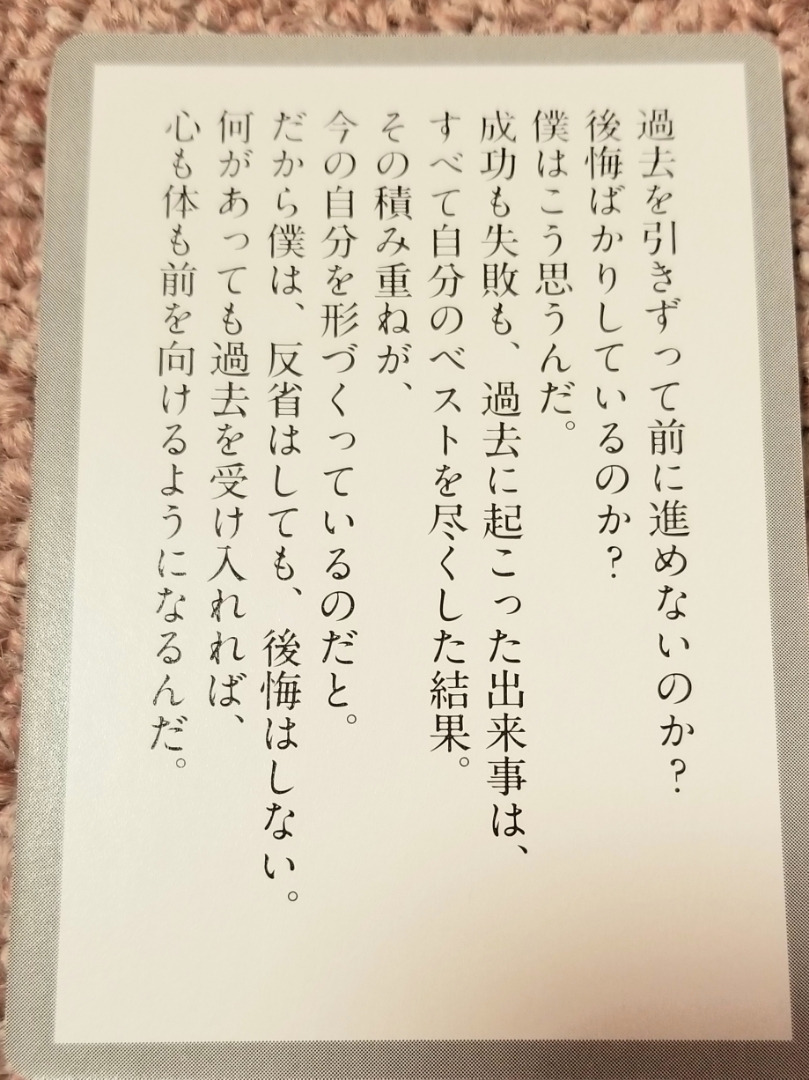 過去を引きずって前に進めないのか？
後悔ばかりしているのか？
僕はこう思うんだ。
成功も失敗も、過去に起こった出来事は、
すべて自分のベストを尽くした結果。
その積み重ねが、
今の自分を形づくっているのだと。
だから僕は、反省はしても、後悔はしない。
何があっても過去を受け入れれば、
心も体も前を向けるようになるんだ。